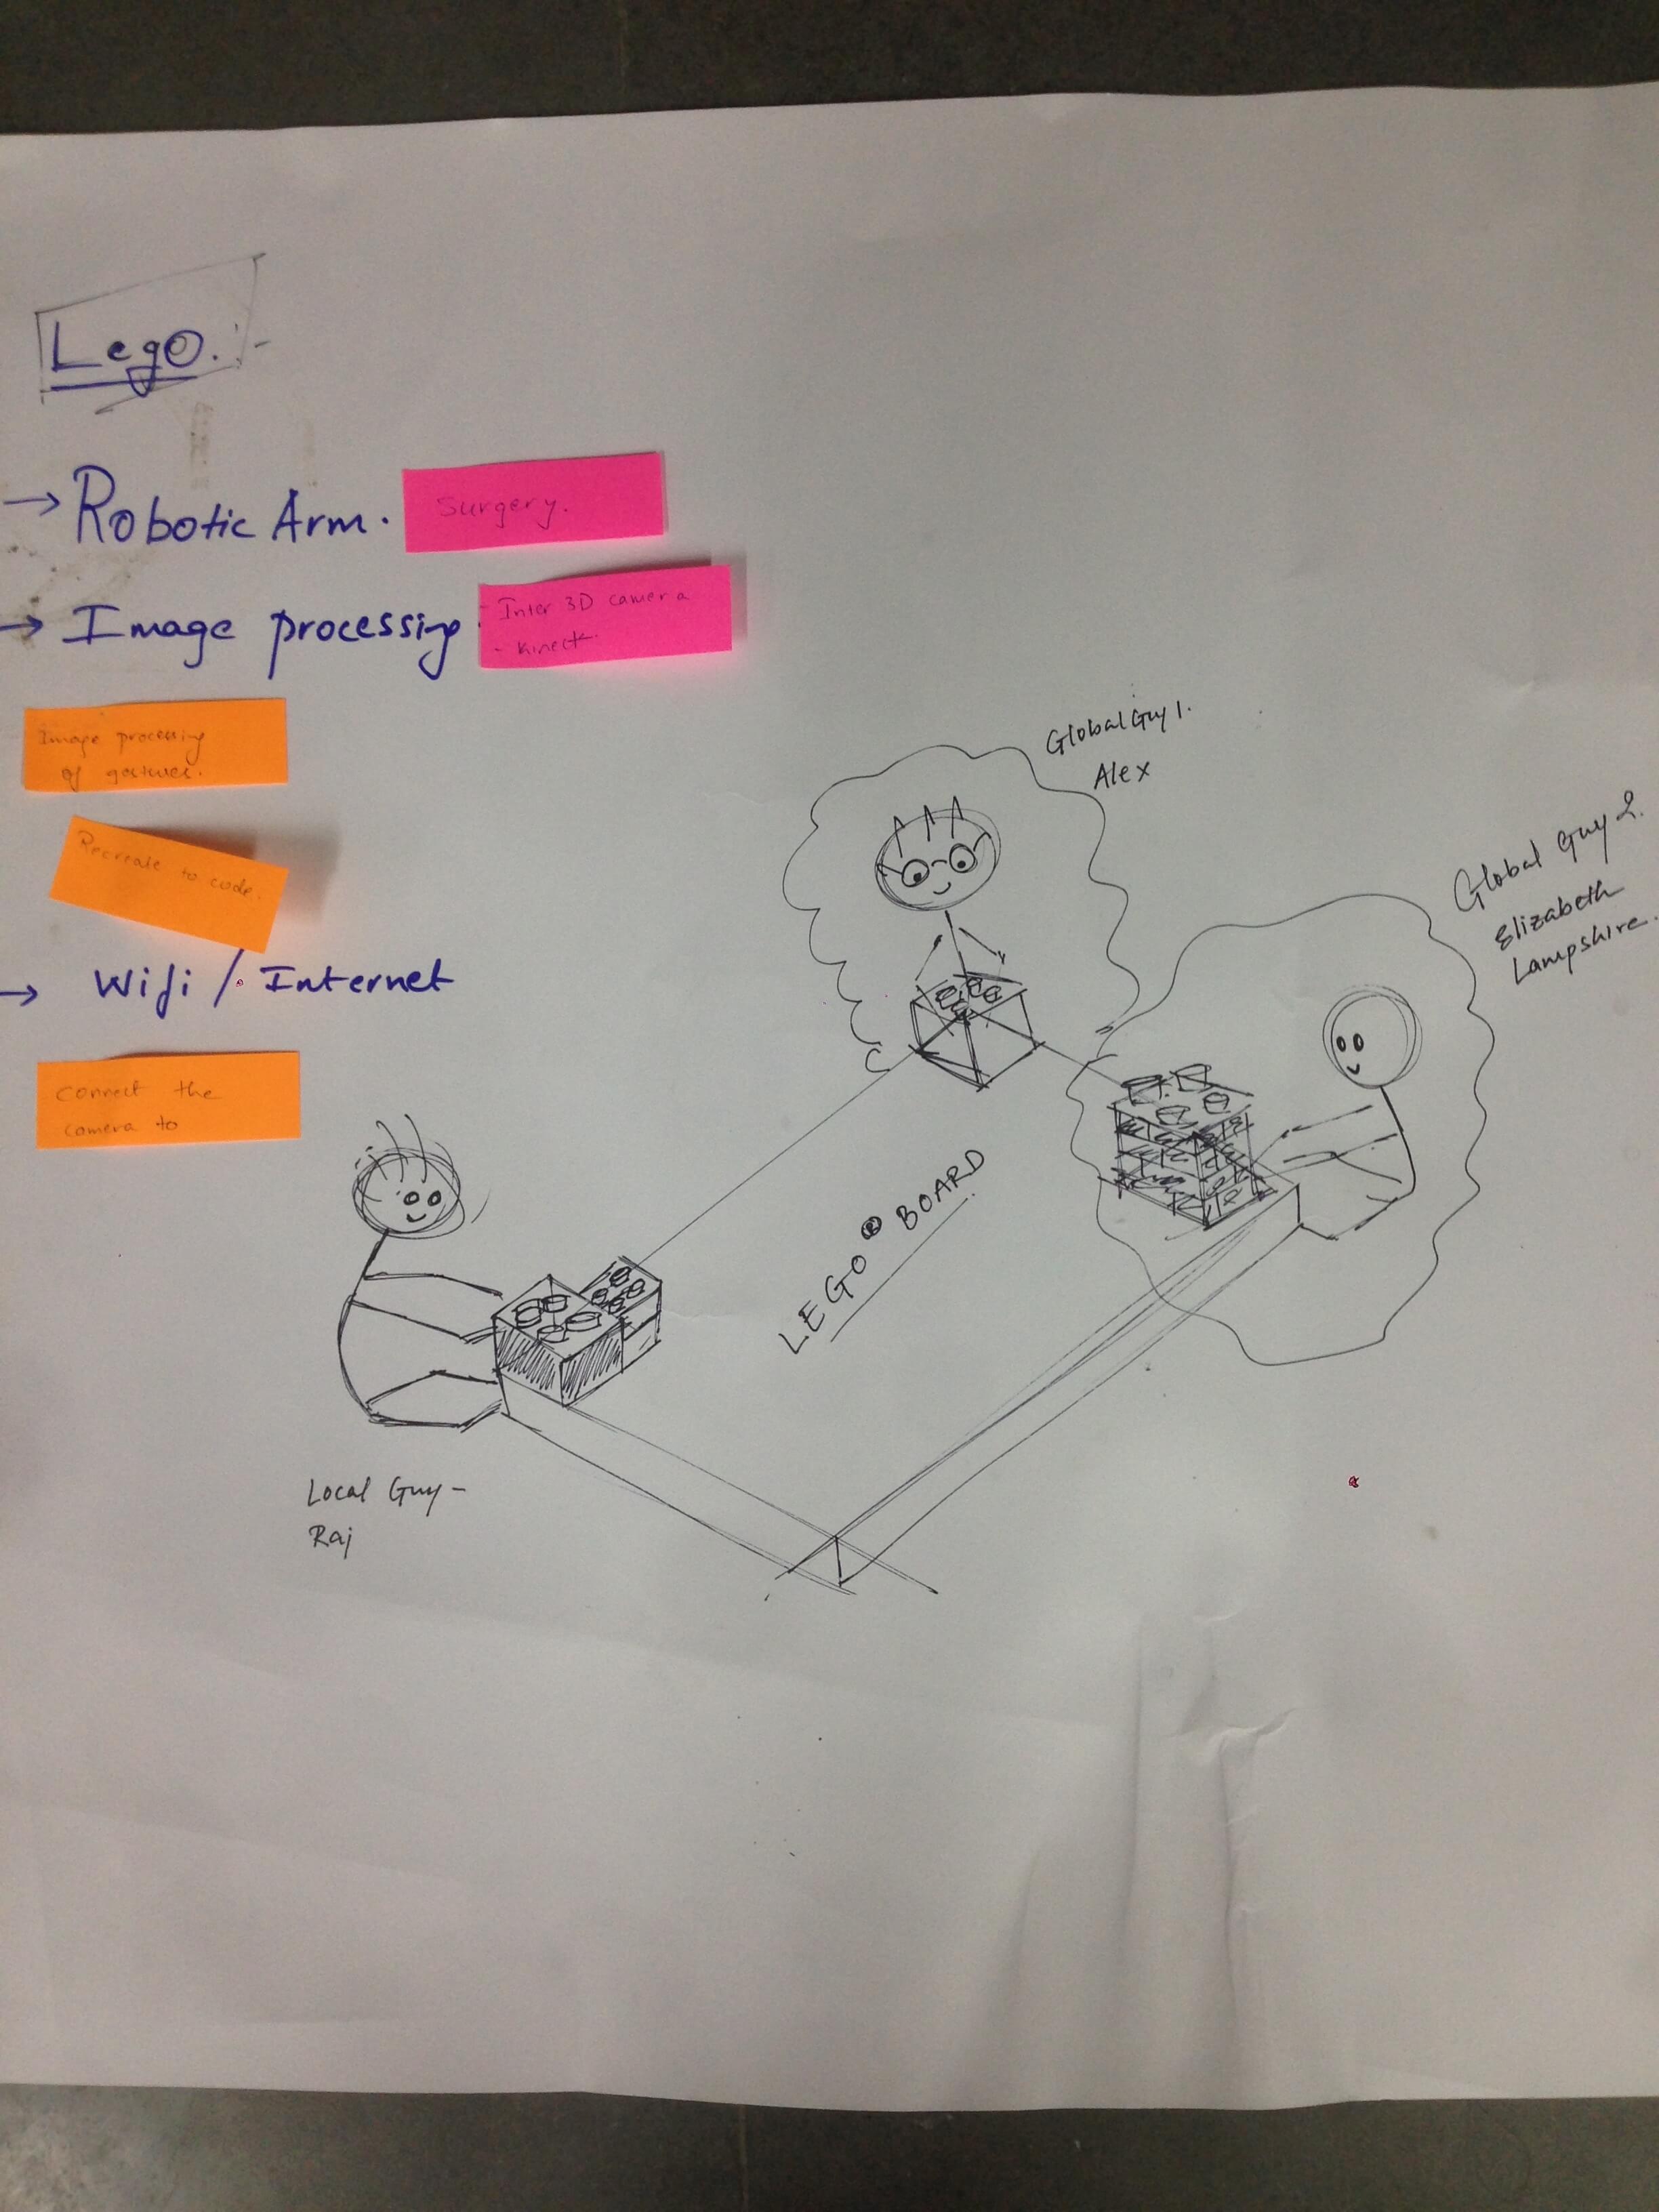 Lego. :-
→ Robotic Arm.
Surgery.
→ Image processing.
- Inter 3D camera
- kinect
Image processing
of gestures.
Recreate to code.
→ Wifi / Internet
Connect the
camera to
Global Guy 1.
Alex
Global Guy 2.
Elizabeth
Lampshire.
LEGO ® BOARD
Local Guy -
Raj